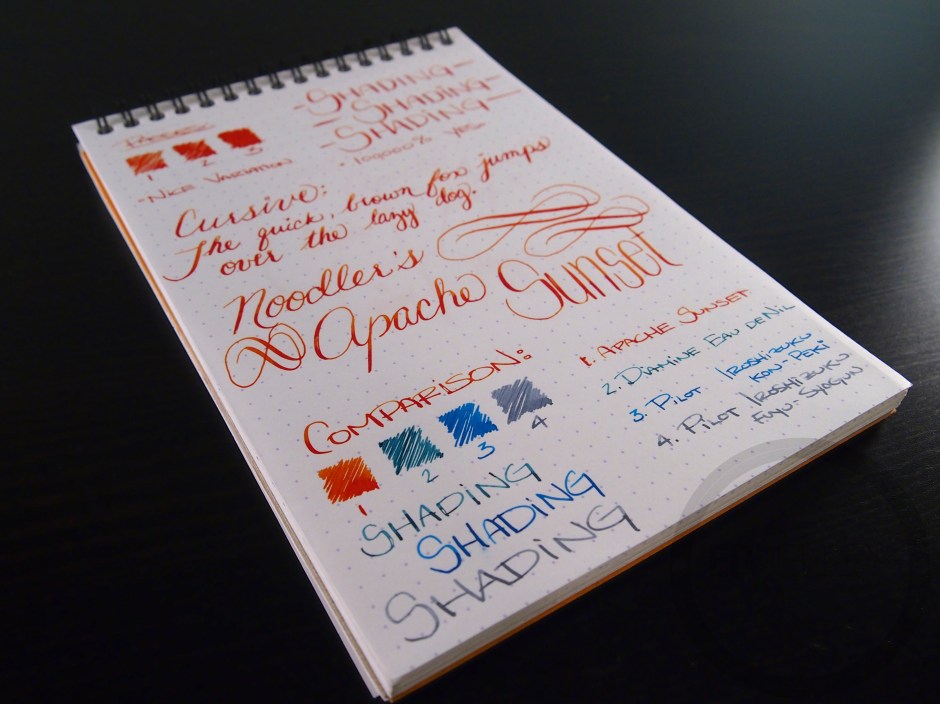 -SHADING-
-SHADING-
-SHADING-
• 100000% YES
1 2 3
-NICE VARIATION
Cursive:
The quick, brown fox jumps
over the lazy dog.
Noodler's
Apache Sunset
COMPARISON:
1 2 3 4
1. APACHE SUNSET
2. DIAMINE EAU DE NIL
3. PILOT IROSHIZUKU
KON-PEKI
4. PILOT IROSHIZUKU
FUYU-SYOGUN
SHADING
SHADING
SHADING